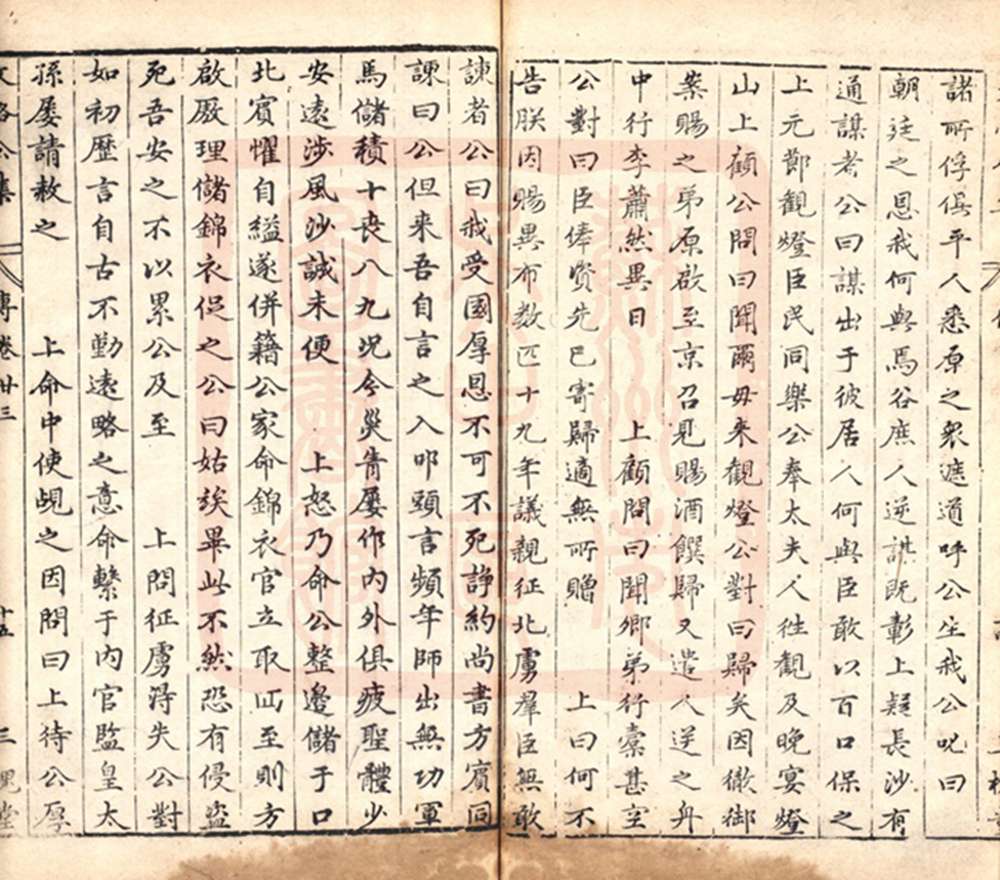 諸所俘俱平人悉原之衆遮道呼公生我公叱曰
朝廷之恩我何與焉谷庶人逆謀既彰上疑長沙有
通謀者公曰謀出于彼居人何與臣敢以百口保之
上元節觀燈臣民同樂公奉太夫人徃觀及晚宴燈
山上顧公問曰聞爾毋来觀燈公對曰歸矣因徹御
案賜之弟原啟至京召見賜酒饌歸又遣人逆之舟
中行李蕭然異日　上顧問曰聞卿弟行橐甚空
公對曰臣俸贤先已寄歸適無所贈　上曰何不
告朕因賜異布数匹十九年議親征北虜羣臣無敢
諫者公曰我受國厚恩不可不死諍約尚書方賓同
諫曰公但来吾自言之入叩頭言頻年師出無功軍
馬儲積十丧八九况今災眚屡作内外俱疲聖體少
安遠渉風沙誠未便　上怒乃命公整邊儲于口
北賓懼自縊遂併籍公家命錦衣官立取囬至則方
啟厫理儲錦衣促之公曰姑竢畢此不然恐有侵盜
死吾安之不以累公及至　上問征虜淂失公對
如初歴言自古不勤遠略之意命繫于内官監皇太
孫屡請赦之　上命中使覘之因問曰上待公厚
傳卷廿三
十五